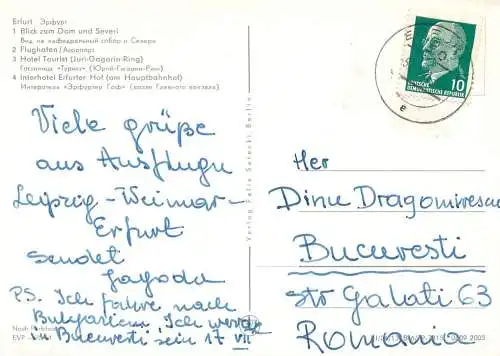 Erfurt Эрфурт
1 Blick zum Dom und Severi
Вид на кафедральный собор и Севери
2 Flughafen (Аэропорт)
3 Hotel Tourist (Juri-Gagarin-Ring)
Гостиница «Турист» (Юрий-Гагарин-Ринг)
4 Interhotel Erfurter Hof (am Hauptbahnhof)
Интеротель «Эрфуртер Гоф» (возле Главного вокзала)
Viele grüße
aus Ausflugu
Leipzig-Weimar-
Erfurt
sendet
Jagoda
PS. Ich fahre nach
Bulgarien. Ich werde
in Bucuresti sein 17 VII
Nach
EVP
Verlag Felix Setecki Berlin
10
DEUTSCHE
DEMOKRATISCHE REPUBLIK
e
Her
Dinu Dragomirescu
Bucuresti
str Galati 63
Romania